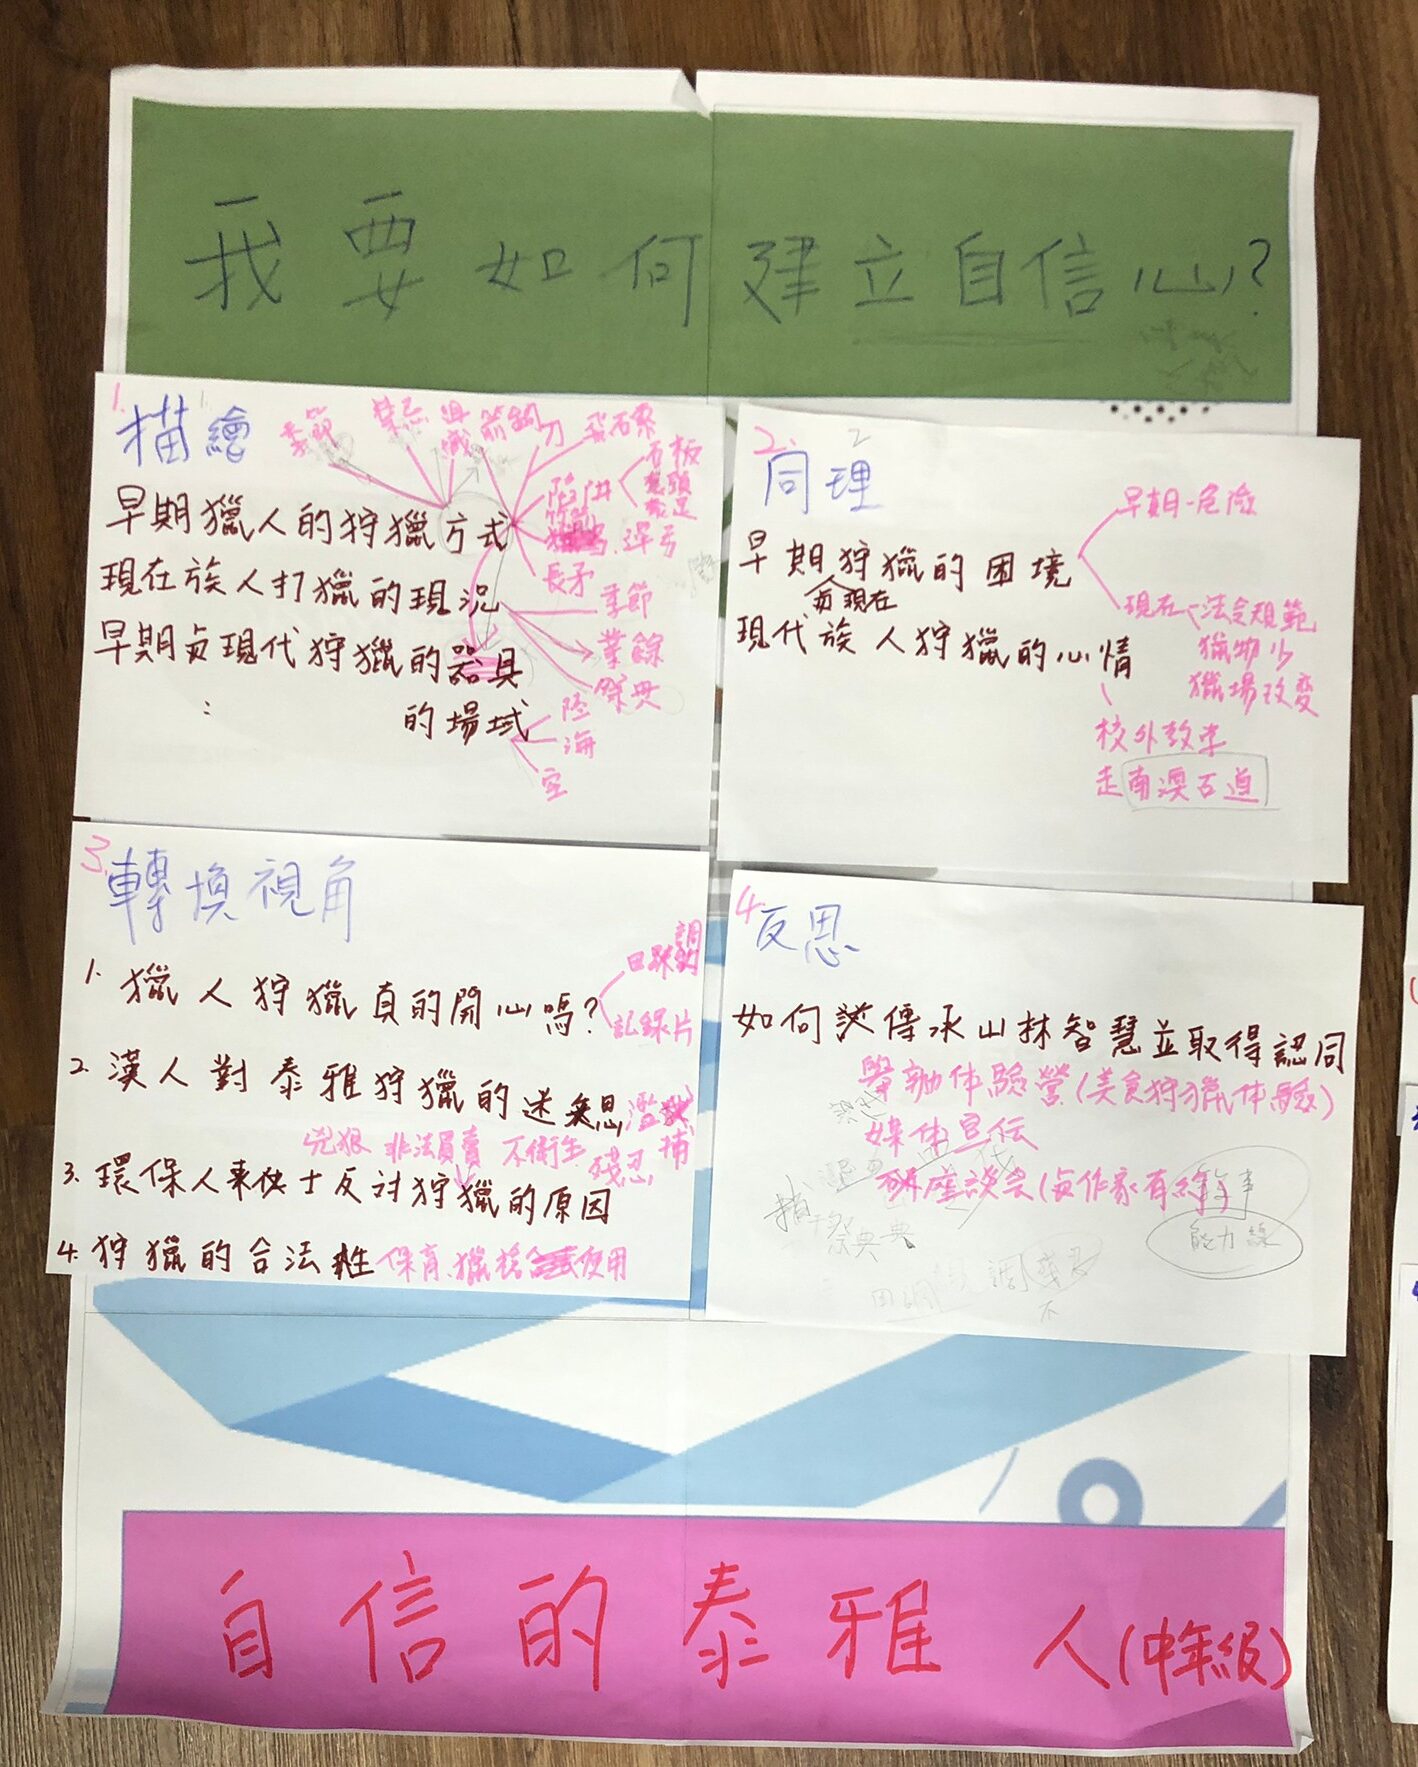 我要如何建立自信心?
1.
描繪
季節
禁忌
刀
飛石索
早期獵人的狩獵方式
陷阱
石板
長矛
現在族人打獵的現況
季節
業餘
祭典
早期與現代狩獵的器具
:
的場域
陸
海
空
2. 2
同理
早期狩獵的困境
早期-危險
與現在
現代族人狩獵的心情
現在
法令規範
獵物少
獵場改變
校外教學
走南澳古道
3.
轉換視角
1. 獵人狩獵真的開心嗎?
紀錄片
2. 漢人對泰雅狩獵的迷思
濫捕
兇狠 非法買賣 不衛生 殘忍
3. 環保人士反對狩獵的原因
4. 狩獵的合法性 保育、獵槍使用
4.
反思
如何談傳承山林智慧並取得認同
舉辦體驗營(美食狩獵體驗)
媒体宣伝
座談会
祭典
能力線
自信的泰雅人(中年級)